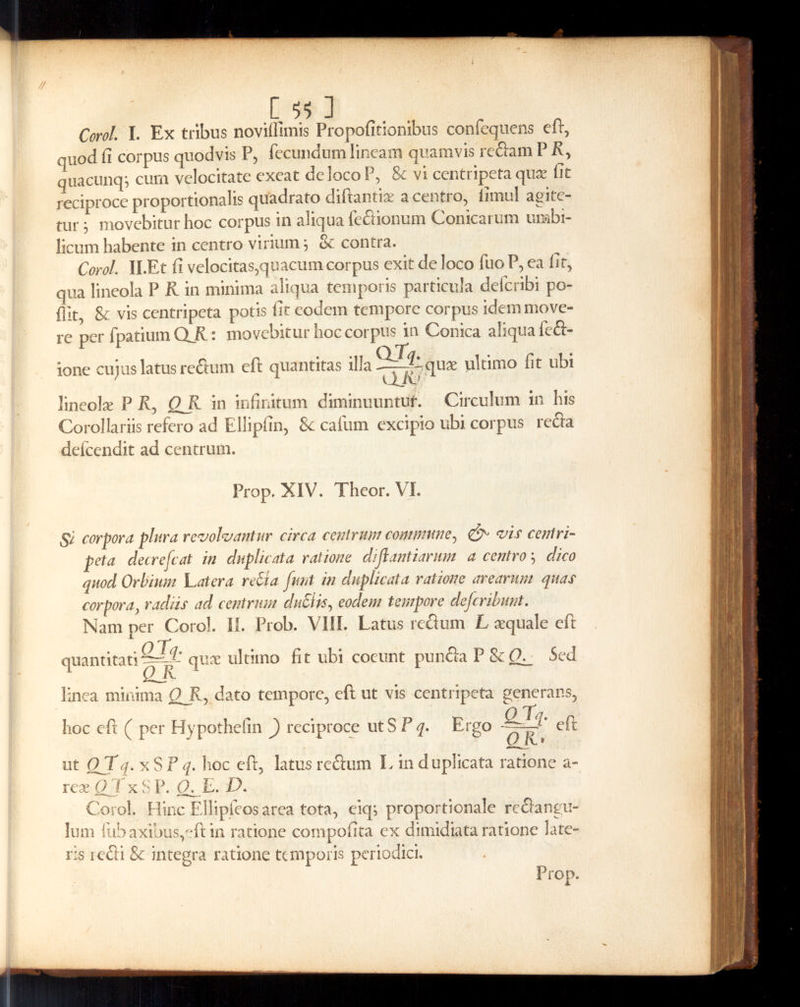 [ 55 ]
Corol. I. Ex tribus noviſſimis Propoſitionibus conſequens eſt,
quod ſi corpus quodvis P, ſecundum lineam quamvis rectam P R,
quacunq; cum velocitate exeat de loco P, & vi centripeta quæ ſit
reciproce proportionalis quadrato diſtantiæ a centro, ſimul agite-
tur; movebitur hoc corpus in aliqua ſectionum Conicarum umbi-
licum habente in centro virium; & contra.
Corol. II.Et ſi velocitas,quacum corpus exit de loco ſuo P, ea ſit,
qua lineola P R in minima aliqua temporis particula deſcribi po-
ſſit, & vis centripeta potis ſit eodem tempore corpus idem move-
re per ſpatium QR: movebitur hoc corpus in Conica aliqua ſect-
ione cujus latus rectum eſt quantitas illa QTq./QR quæ ultimo fit ubi
lineolæ P R, QR in infinitum diminuuntur. Circulum in his
Corollariis refero ad Ellipſin, & caſum excipio ubi corpus recta
deſcendit ad centrum.
Prop. XIV. Theor. VI.
Si corpora plura revolvantur circa centrum commune, & vis centri-
peta decreſcat in duplicata ratione diſtantiarum a centro; dico
quod Orbium Latera recta ſunt in duplicata ratione arearum quas
corpora, radiis ad centrum ductis, eodem tempore deſcribunt.
Nam per Corol. II. Prob. VIII. Latus rectum L æquale eſt
quantitati QTq./QR quæ ultimo fit ubi coeunt puncta P & Q. Sed
linea minima QR, dato tempore, eſt ut vis centripeta generans,
hoc eſt ( per Hypotheſin ) reciproce ut S P q. Ergo QTq./QR. eſt
ut QTq. x S P q. hoc eſt, latus rectum L in duplicata ratione a-
reæ QT x S P. Q. E. D.
Corol. Hinc Ellipſeos area tota, eiq; proportionale rectangu-
lum ſub axibus, eſt in ratione compoſita ex dimidiata ratione late-
ris recti & integra ratione temporis periodici.
Prop.